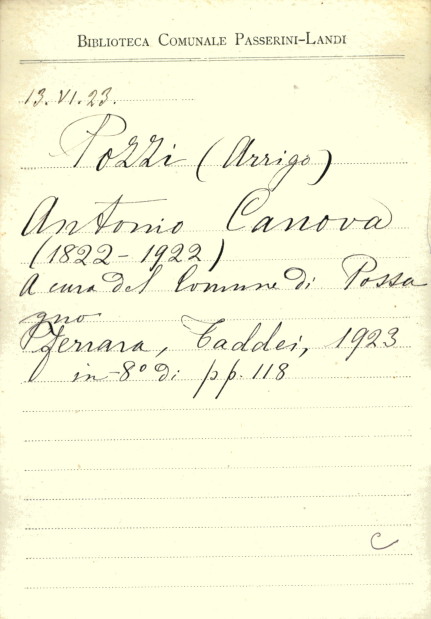 BIBLIOTECA COMUNALE PASSERINI-LANDI
13.VI.23.
Pozzi (Arrigo)
Antonio Canova
(1822-1922)
A cura del Comune di Possa
gno
Ferrara, Taddei, 1923
in-8º di pp. 118
C